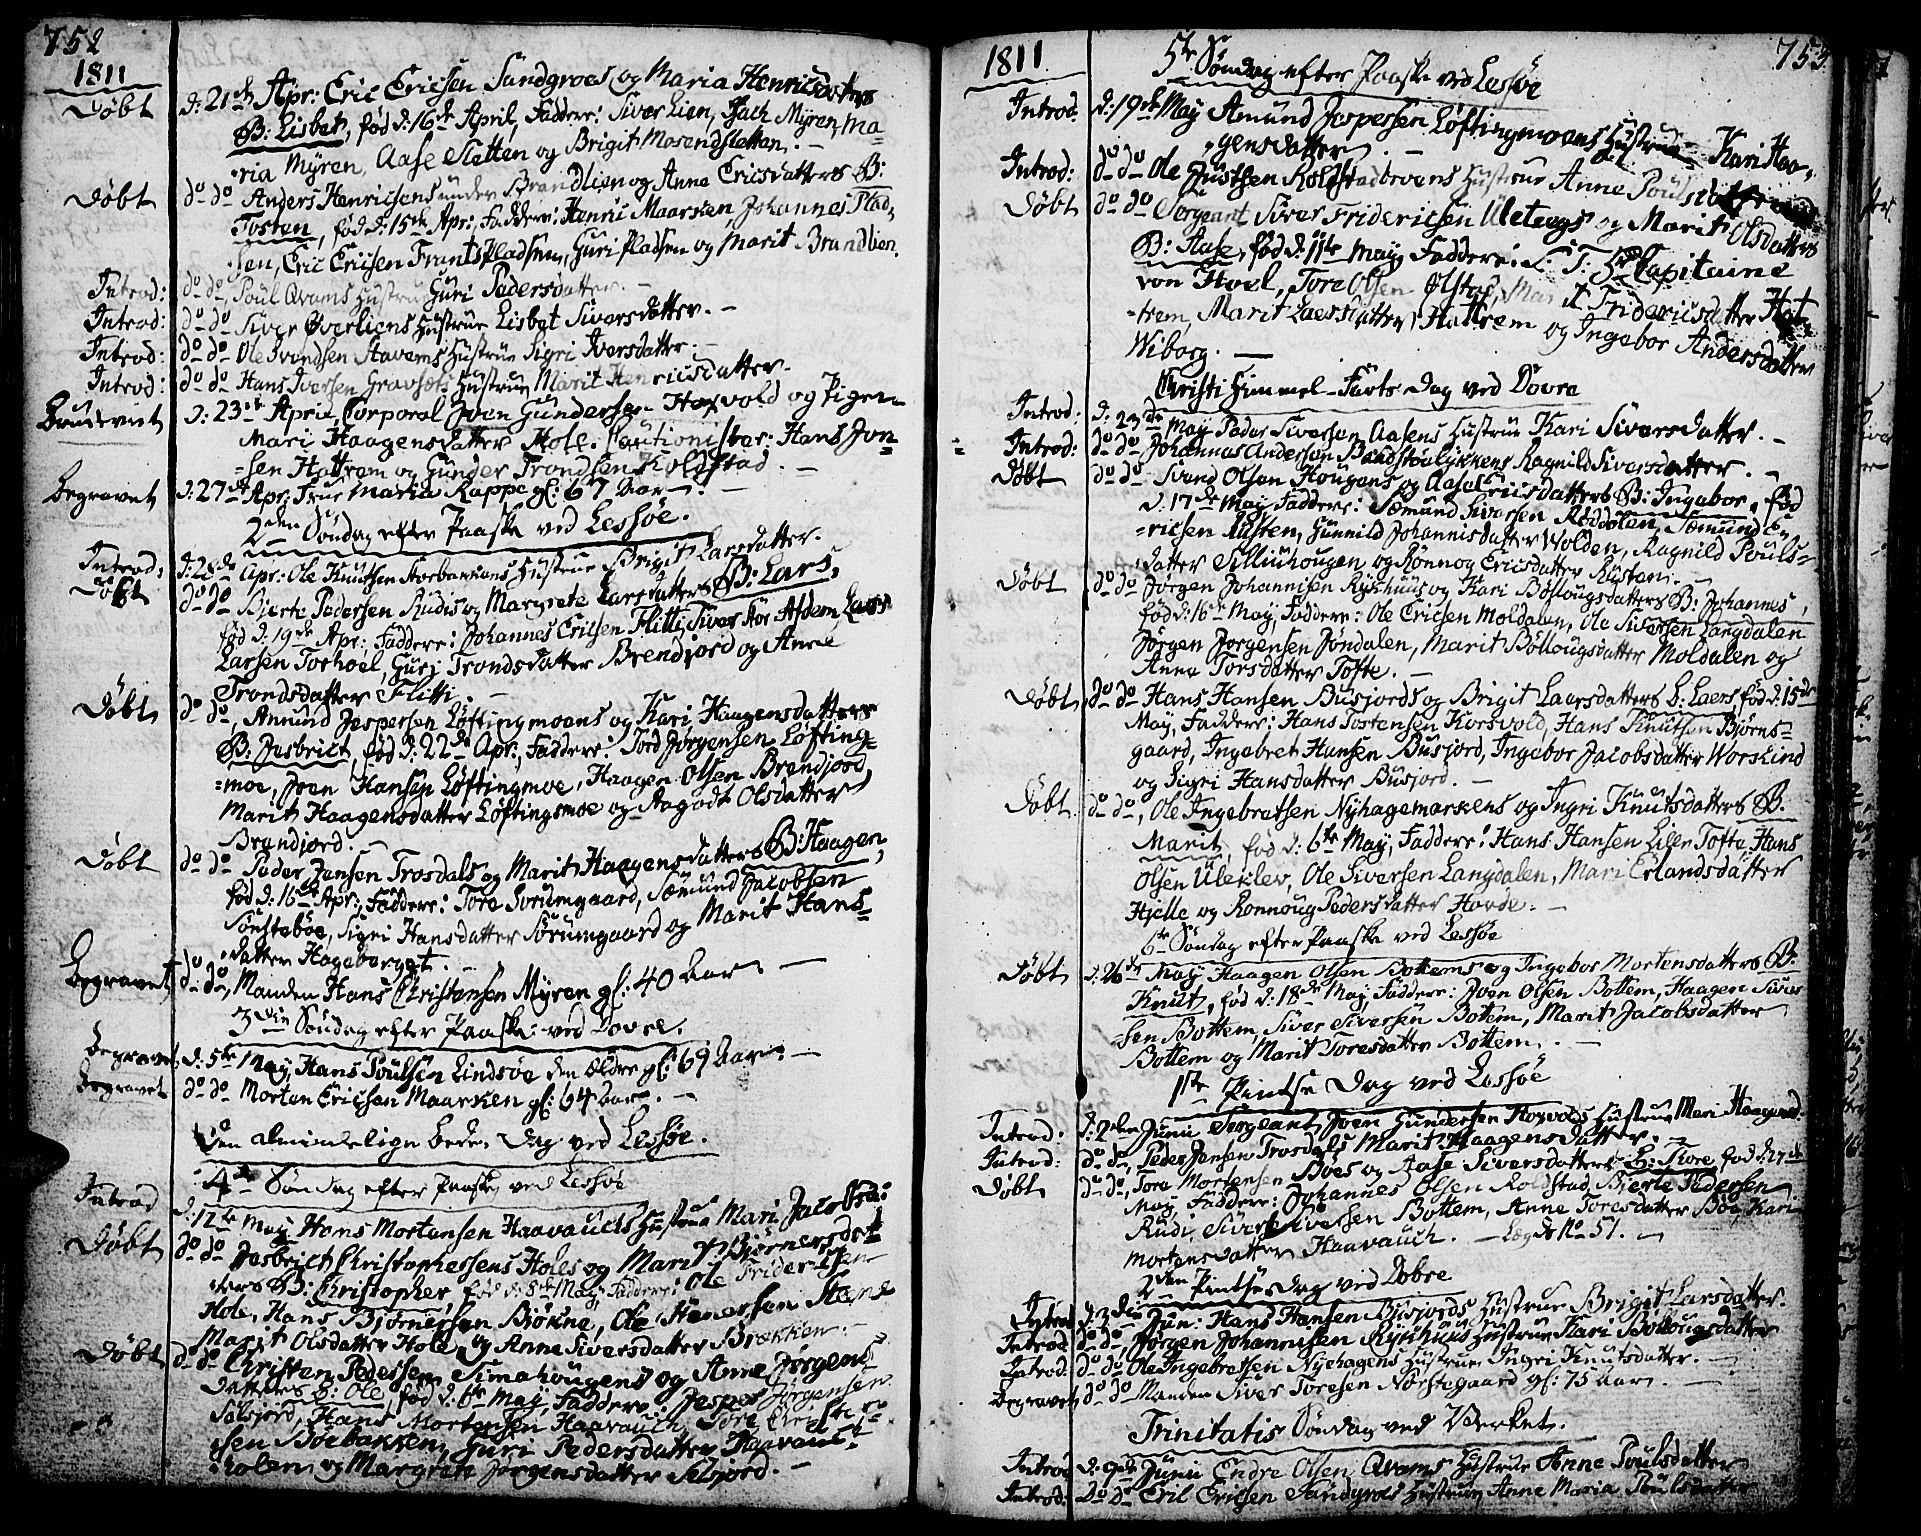 752
1811
Døbt d: 21de Apr: Eric Ericsen Sandgroes og Maria Henricsdatters
B: Lisbet, fød d: 16de April, Faddere: Siver Lien, Jach Myren, Ma=
ria Myren, Aase Sletten og Brigit Mosendsletten. —
Døbt do do Anders Henricsens under Brandlien og Anne Ericsdatters B:
Tosten, fød d: 15de Apr: Faddere: Henni Maarsken, Johannes Plad=
sen, Eric Ericsen Frunts Pladsen, Guri Pladsen og Marit Brandlien.
Introd: do do, Poul Qvams Hustrue Guri Pedersdatter. —
Introd: do do Siver Øverliens Hustrue Lisbet Siversdatter. —
Introd: do do Ole Svendsen Stavems Hustrue Sigri Iversdatter. —
Introd: do do Hans Iversen Gravsets Hustrue Marit Henricsdatter.
Brudeviet d: 23de April Corporal Joen Gundersen Hoxvold og Pigen
Mari Haagensdatter Hole. Cautionister: Hans Jon=
sen Hattrem og Gunder Trondsen Koldstad. —
Begravet d: 27de Apr: Frue Maria Rappe gl: 67 Aar. —
2den Søndag efter Paaske ved Lessøe.
Introd: d: 28de Apr: Ole Knutsen Storbakkens Hustrue Brigit Larsdatter.
Døbt do do Bierte Pedersen Rudis og Margrete Larsdatters B: Lars,
fød d: 19de Apr: Faddere: Johannes Ericsen Flitti, Siver Afdem, Lars
Larsen Torhoel, Guri Trondsdatter Brendjord og Anne
Trondsdatter Flitti. —
Døbt do do, Amund Jespersen Løftingmoens og Kari Haagensdatters
B: Jesbrict, fød d: 22de Apr:, Faddere: Tord Jørgensen Løfting=
moe, Joen Hansen Løftingmoe, Haagen Olsen Brendjord,
Marit Haagensdatter Løftingsmoe og Aagodt Olsdatter
Brendjord. —
Døbt do do Peder Jensen Trosdals og Marit Haagensdatters B: Haagen,
fød d: 16de Apr:, Faddere: Tore Sorumgaard, Sæmund Jacobsen
Sønstebøe, Sigri Hansdatter Sørumgaard og Marit Hans=
datter Hageberget. —
Begravet do do, Manden Hans Christensen Myren gl: 40 Aar. —
3die Søndag efter Paaske ved Dovre.
Begravet d: 5te May Hans Poulsen Lindsøe den Eldre gl: 69 Aar. —
Begravet do do Morten Ericsen Maarsken gl: 64 Aar. —
Den almindelige Bede Dag ved Lessøe.
4de Søndag efter Paaske ved Lessøe
Introd d: 12te May Hans Mortensen Haavauchs Hustrue Mari Jacobsd:
Døbt do do Jesbrict Christophersens Holes og Marit Bjørnersdat=
ters B: Christopher, fød d: 8de May, Faddere: Ole Fridericsen
Hole, Hans Bjørnersen Bjøkne, Ole Stenersen Stene
Marit Olsdatter Hole og Anne Siversdatter Brækken. —
Døbt do do Christen Pedersen Simahougens og Anne Jørgens
datters B: Ole, fød d: 6te May, Faddere: Jesper Jørgensen
Selsjord, Hans Mortensen Haavauch, Tore Christen
sen Bøebakken, Guri Pedersdatter Haavauc=
holen og Margrete Jørgensdatter Selsjord. —
1811
753.
5te Søndag efter Paaske ved Lessøe
Introd: d: 19de May Amund Jespersen Løftingmoens Hustrue Kari Haa=
gensdatter. —
Introd: do do Ole Justsen Roldstadbevens Hustrue Anne Poulsdatter
Døbt do do Sergeant Siver Fridericsen Uletegs og Marit Olsdatters
B: Aase, fød d: 11te May, Faddere: S: T: Hr Capitaine
von Hoel, Tore Olsen Ølstad, Marit Fridericsdatter Hat=
trem, Marit Laersdatter Hattrem og Ingebor Andersdatter
Wiborg. —
Christi Himmel-Farts Dag ved Dovre
Introd: d: 23de May Peder Siversen Aasens Hustrue Kari Siversdatter. —
Introd: do do Johannes Andersen Bandstølykkens Ragnild Siversdatter. —
Døbt do do Svend Olsen Hougens og Aase Ericsdatters B: Ingebor, fød
d: 17de May, Faddere: Sæmund Siversen Røddølen, Sæmund E=
ricsen Rusten, Gunnild Johannisdatter Wolden, Ragnild Pouls=
datter Silliuhougen og Rønnog Ericsdatter Rusten. —
Døbt do do Jørgen Johannisen Rykhuus og Kari Bøllougsdatters B: Johannes,
fød d: 16de May, Faddere: Ole Ericsen Moldalen, Ole Siversen Langdalen
Jørgen Jørgensen Jøndalen, Marit Bøllougsdatter Moldalen og
Anne Torsdatter Tofte. —
Døbt do do Hans Hansen Busjords og Brigit Laersdatters B: Laers, fød d: 15de
May, Faddere: Hans Tostensen Korsvold, Hans Knutsen Bjørns=
gaard, Ingebret Hansen Busjord, Ingebor Jacobsdatter Worskind
og Sigri Hansdatter Busjord. —
Døbt do do, Ole Ingebretsen Nyhagemarkens og Ingri Knutsdatters B.
Marit, fød d: 6te May, Faddere: Hans Hansen Lille Tofte, Hans
Olsen Uleklev, Ole Siversen Langdalen, Mari Erlandsdatter
Hjelle og Ronnoug Pedersdatter Hovde. —
6te Søndag efter Paaske ved Lessøe
Døbt d: 26de May Haagen Olsen Bottems og Ingebor Mortensdatters B:
Knut, fød d: 18de May, Faddere: Joen Olsen Bottem, Haagen Siver
sen Bottem, Siver Siversen Bottem, Marit Jacobsdatter
Bottem og Marit Toresdatter Bottem. —
1ste Pintse Dag ved Lessøe
Introd: d: 2den Junii Sergeant Joen Gundersen Hoxvolds Hustrue Mari Haagensd.
Introd: do do, Peder Jensen Trosdals Marit Haagensdatter.
Døbt do do, Tore Mortensen Boes og Aase Siversdatters B: Tore, fød d: 27de
May, Faddere: Johannes Olsen Roldstad, Bierte Pedersen
Rudi, Siver Iversen Bottem, Anne Toresdatter Bøe, Kari
Mortensdatter Haavauch. — Lægds No 51. —
2den Pintse Dag ved Dovre
Introd d: 3die Jun: Hans Hansen Busjords Hustrue Brigit Larsdatter.
Introd: do do, Jørgen Johannisen Rykhuus Hustrue Kari Bøllougsdatter
Introd: do do Ole Ingebretsen Nyehagens Hustrue Ingri Knutsdatter. —
Begravet do do Manden Siver Toresen Norstegaard gl: 75 Aar. —
Trinitatis Søndag ved Verket.
Introd d: 9de Junii Endre Olsen Qvams Hustrue Anne Poulsdatter
Introd: do do Eril Ericsen Sandgroes Hustrue Anne Maria Poulsdatter